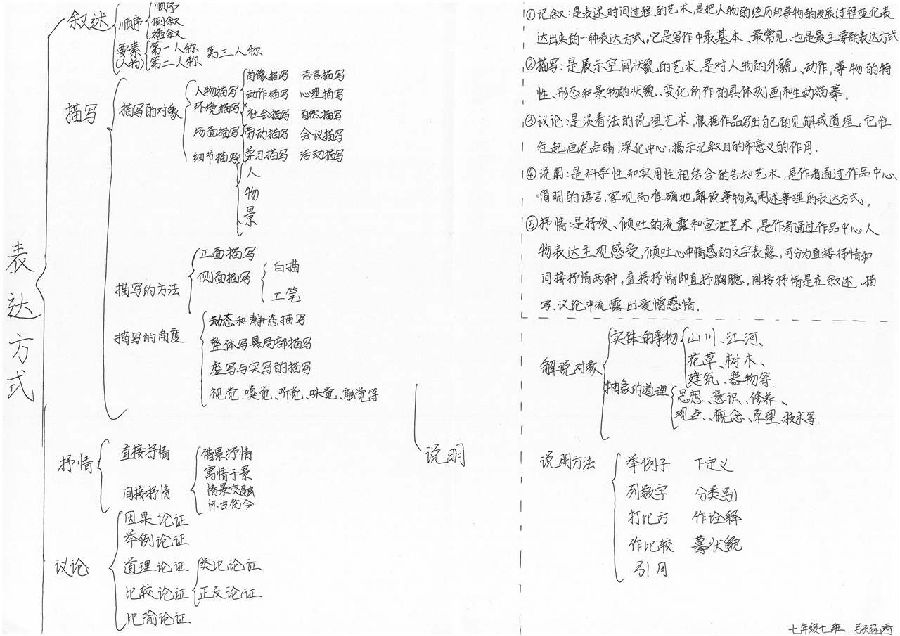 表达方式
叙述
顺序
顺叙
倒叙
插叙
要素
(人物)
第一人称
第二人称
第三人称
描写
描写的对象
人物描写
环境描写
场面描写
细节描写
肖像描写 语言描写
动作描写 心理描写
社会描写 自然描写
劳动描写 会议描写
学习描写 活动描写
人
物
景
描写的方法
正面描写
侧面描写
白描
工笔
描写的角度
动态和静态描写
整体写与局部描写
虚写与实写的描写
视觉、嗅觉、听觉、味觉、触觉等
抒情
直接抒情
间接抒情
借景抒情
寓情于景
情景交融
议论
因果论证
举例论证
道理论证
比较论证
比喻论证
类比论证
正反论证
说明
①记叙:是表述时间过程的艺术,是把人物的经历和事物的发展过程变化表
达出来的一种表达方式,它是写作中最基本、最常见、也是最主要的表达方式
②描写:是展示空间状貌的艺术,是对人物的外貌、动作,事物的特
性、形态和景物的状貌、变化所作的具体刻画和生动描摹。
③议论:是谈看法的说理艺术,根据作品写出自己的见解或道理,它往
往起画龙点睛、深化中心、揭示记叙目的和意义的作用。
④说明:是科学性和实用性相结合的告知艺术,是作者通过作品中心,
简明的语言,客观而准确地解说事物或阐述事理的表达方式。
⑤抒情:是抒发、倾吐的流露和宣泄艺术,是作者通过作品中心人
物表达主观感受,倾吐心中情感的文字表露,可分为直接抒情和
间接抒情两种,直接抒情即直抒胸臆,间接抒情是在叙述、描
写、议论中流露出爱憎感情。
解说对象
实体的事物
山川、江河、
花草、树木、
建筑、器物等
抽象的道理
思想、意识、修养、
观点、概念、原理、技术等
说明方法
举例子 下定义
列数字 分类别
打比方 作诠释
作比较 摹状貌
引用
七年级七班